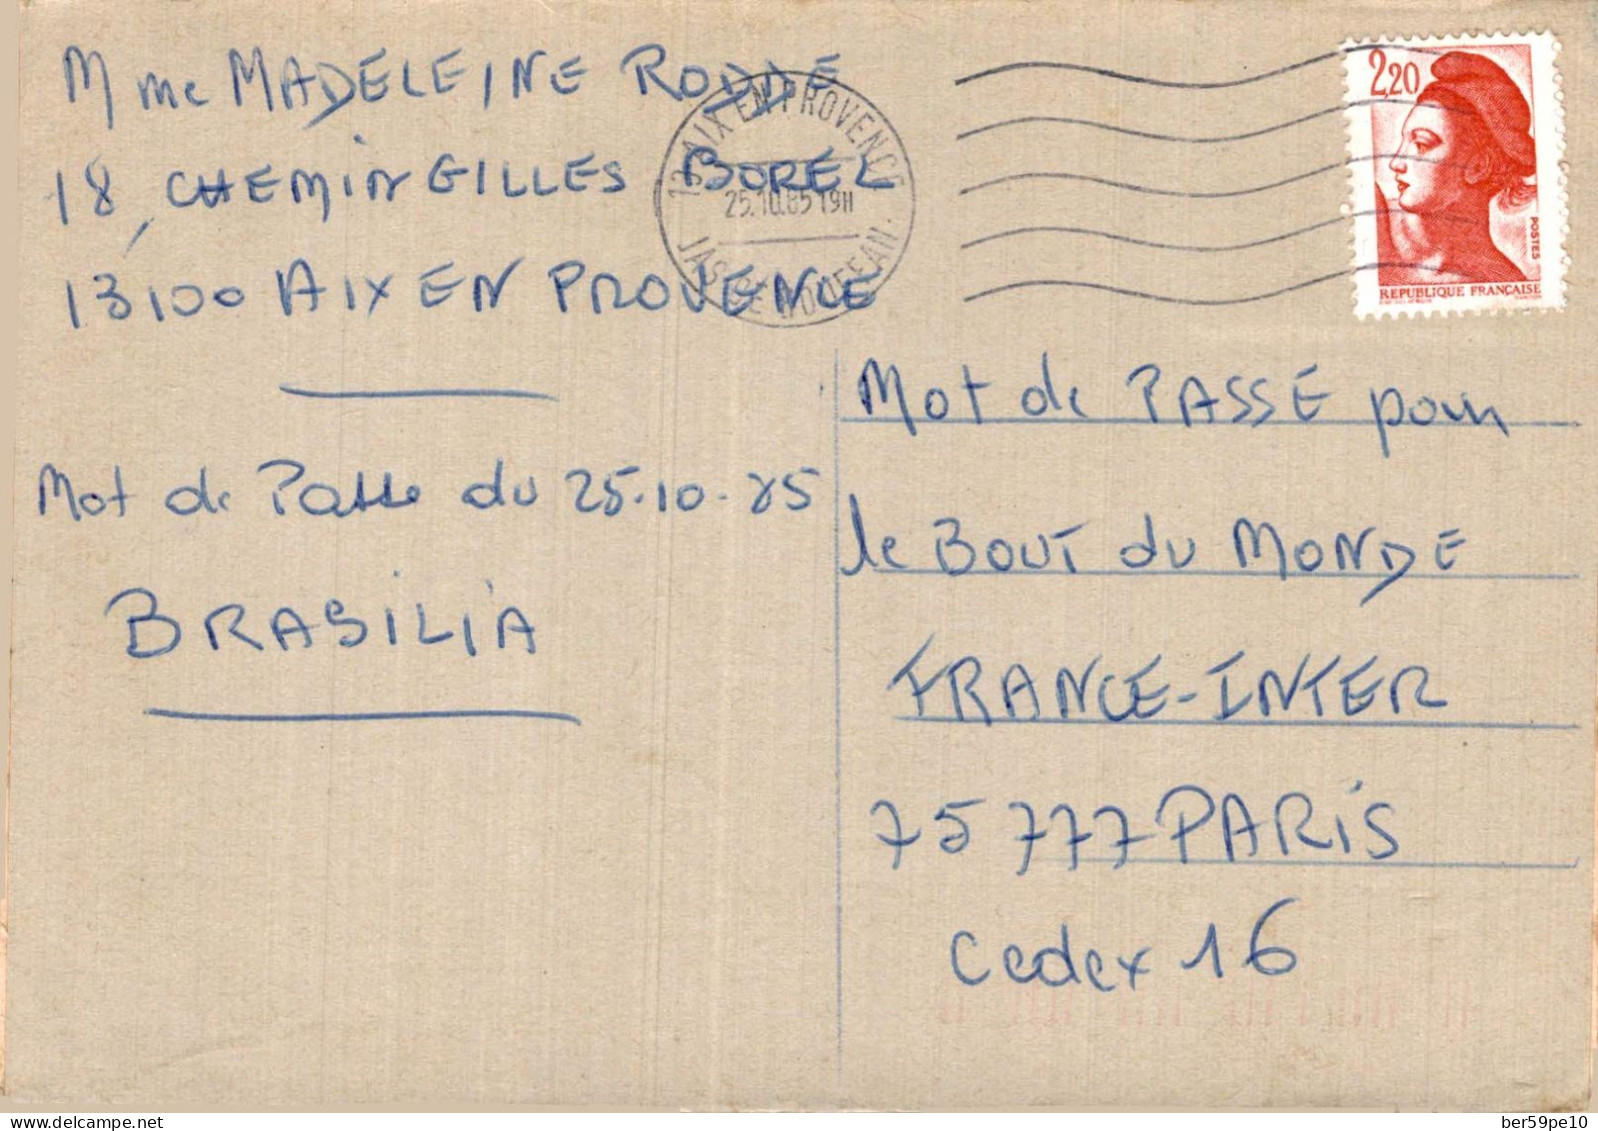 Mme MADELEINE RODDE
18, CHEMIN GILLES BOREL
13100 AIX EN PROVENCE
Mot de Passe du 25-10-85
BRASILIA
13 AIX EN PROVENCE
25.10.85 19H
2,20
POSTES
REPUBLIQUE FRANÇAISE
Mot de PASSE pour
le BOUT du MONDE
FRANCE-INTER
75777 PARIS
Cedex 16
delcampe.net
ber59pe10